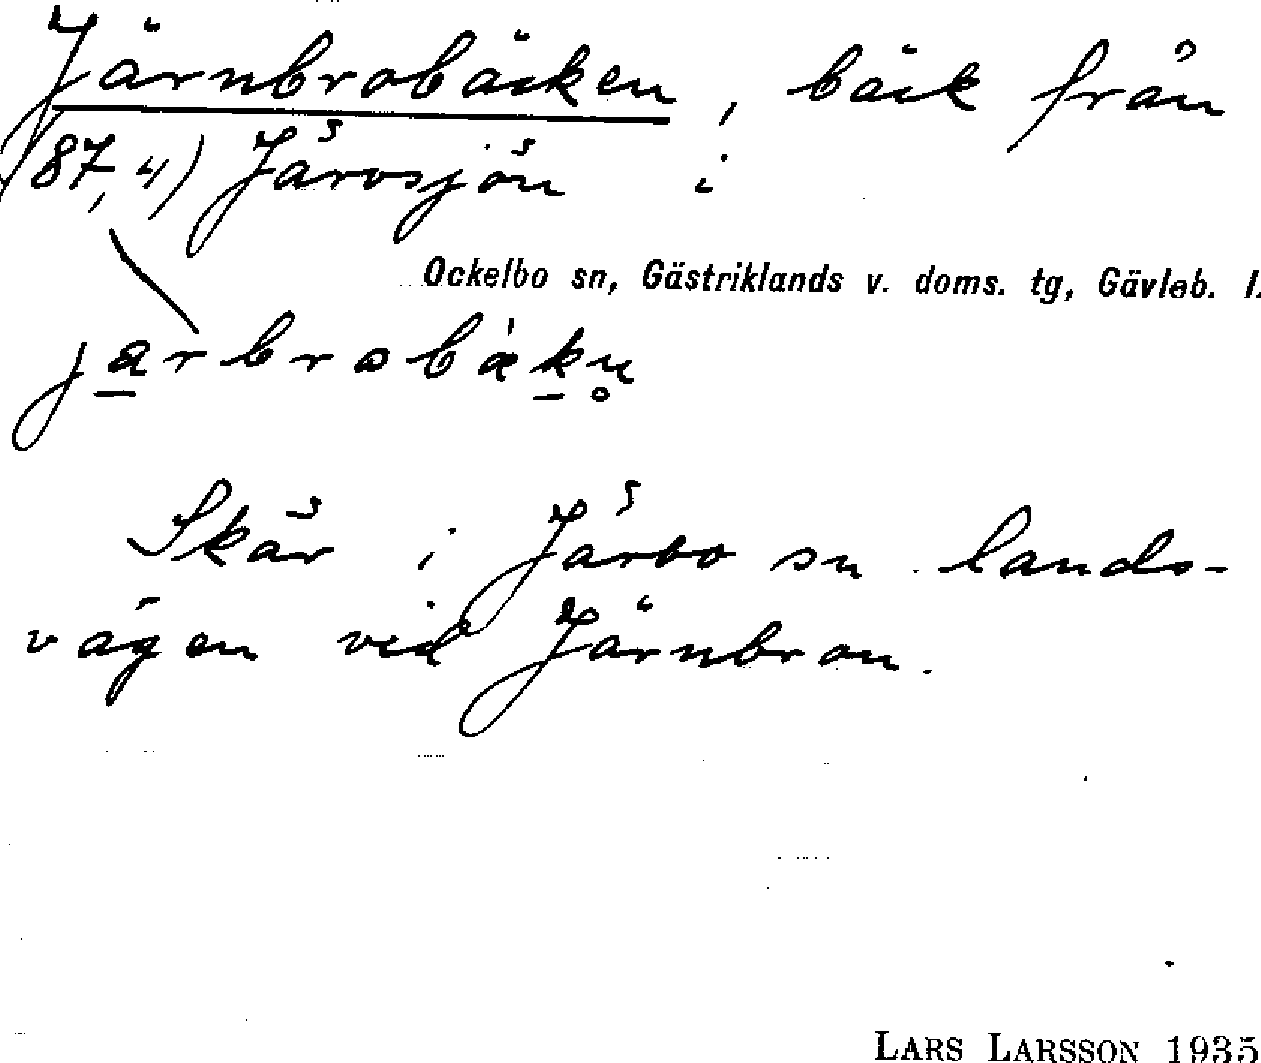 Järnbrobäcken, bäck från
(87,4) Järvsjön i
Ockelbo sn, Gästriklands v. doms. tg, Gävleb. l.
jarbrobäkn̥
Skär i Järbo sn lands-
vägen vid Järnbron.
LARS LARSSON 1935